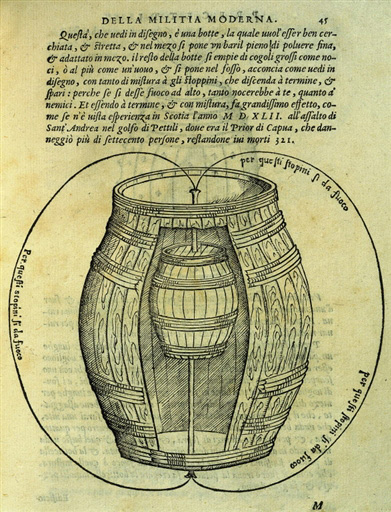 DELLA MILITIA MODERNA. 45
Questa, che uedi in disegno, è una botte, la quale uuol'esser ben cer-
chiata, & stretta, & nel mezo si pone vn baril pieno di poluere fina,
& adattato in mezo. il resto della botte si empie di cogoli grossi come no-
ci, ò al più come un'uouo, & si pone nel fosso, acconcia come uedi in
disegno, con tanto di mistura à gli stoppini, che discenda à termine, &
spari: perche se si desse fuoco ad alto, tanto nocerebbe à te, quanto a'
nemici. Et essendo à termine, & con mistura, fa grandissimo effetto, co-
me se n'è uista esperienza in Scotia l'anno M D. XLII. all'assalto di
Sant'Andrea nel golfo di Pettili, doue era il Prior di Capua, che dan-
neggiò più di settecento persone, restandone iui morti 321.
per questi stopini si da fuoco
Per questi stopini si da fuoco
per questi stopini si da fuoco
M